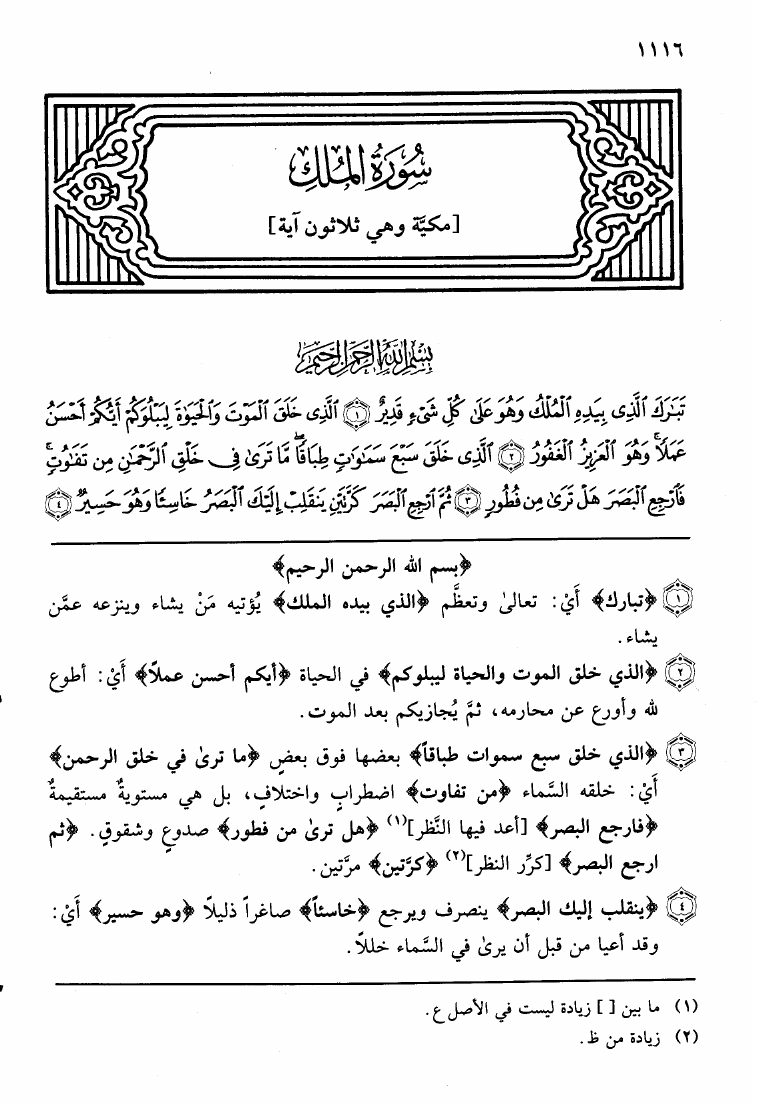 ١١١٦
سُورَةُ المُلكِ
[مكيَّة وهي ثلاثون آية]
بِسْمِ اللَّهِ الرَّحْمَنِ الرَّحِيمِ
تَبَٰرَكَ ٱلَّذِى بِيَدِهِ ٱلْمُلْكُ وَهُوَ عَلَىٰ كُلِّ شَىْءٍ قَدِيرٌ ١ ٱلَّذِى خَلَقَ ٱلْمَوْتَ وَٱلْحَيَوٰةَ لِيَبْلُوَكُمْ أَيُّكُمْ أَحْسَنُ
عَمَلًا ۚ وَهُوَ ٱلْعَزِيزُ ٱلْغَفُورُ ٢ ٱلَّذِى خَلَقَ سَبْعَ سَمَٰوَٰتٍ طِبَاقًا ۖ مَّا تَرَىٰ فِى خَلْقِ ٱلرَّحْمَٰنِ مِن تَفَٰوُتٍ ۖ
فَٱرْجِعِ ٱلْبَصَرَ هَلْ تَرَىٰ مِن فُطُورٍ ٣ ثُمَّ ٱرْجِعِ ٱلْبَصَرَ كَرَّتَيْنِ يَنقَلِبْ إِلَيْكَ ٱلْبَصَرُ خَاسِئًا وَهُوَ حَسِيرٌ ٤
﴿بسم الله الرحمن الرحيم﴾
١ ﴿تبارك﴾ أَيْ: تعالىٰ وتعظَّم ﴿الذي بيده الملك﴾ يُؤتيه مَنْ يشاء وينزعه عمَّن
يشاء.
٢ ﴿الذي خلق الموت والحياة ليبلوكم﴾ في الحياة ﴿أيكم أحسن عملاً﴾ أَيْ: أطوع
لله وأورع عن محارمه، ثمَّ يُجازيكم بعد الموت.
٣ ﴿الذي خلق سبع سموات طباقاً﴾ بعضها فوق بعضٍ ﴿ما ترىٰ في خلق الرحمن﴾
أَيْ: خلقه السَّماء ﴿من تفاوت﴾ اضطرابٍ واختلافٍ، بل هي مستويةٌ مستقيمةٌ
﴿فارجع البصر﴾ [أعد فيها النَّظر](١) ﴿هل ترىٰ من فطور﴾ صدوعٍ وشقوقٍ. ﴿ثم
ارجع البصر﴾ [كرِّر النظر](٢) ﴿كرَّتين﴾ مرَّتين.
٤ ﴿ينقلب إليك البصر﴾ ينصرف ويرجع ﴿خاسئاً﴾ صاغراً ذليلاً ﴿وهو حسير﴾ أَيْ:
وقد أعيا من قبل أن يرىٰ في السَّماء خللاً.
(١) ما بين [ ] زيادة ليست في الأصل ع.
(٢) زيادة من ظ.